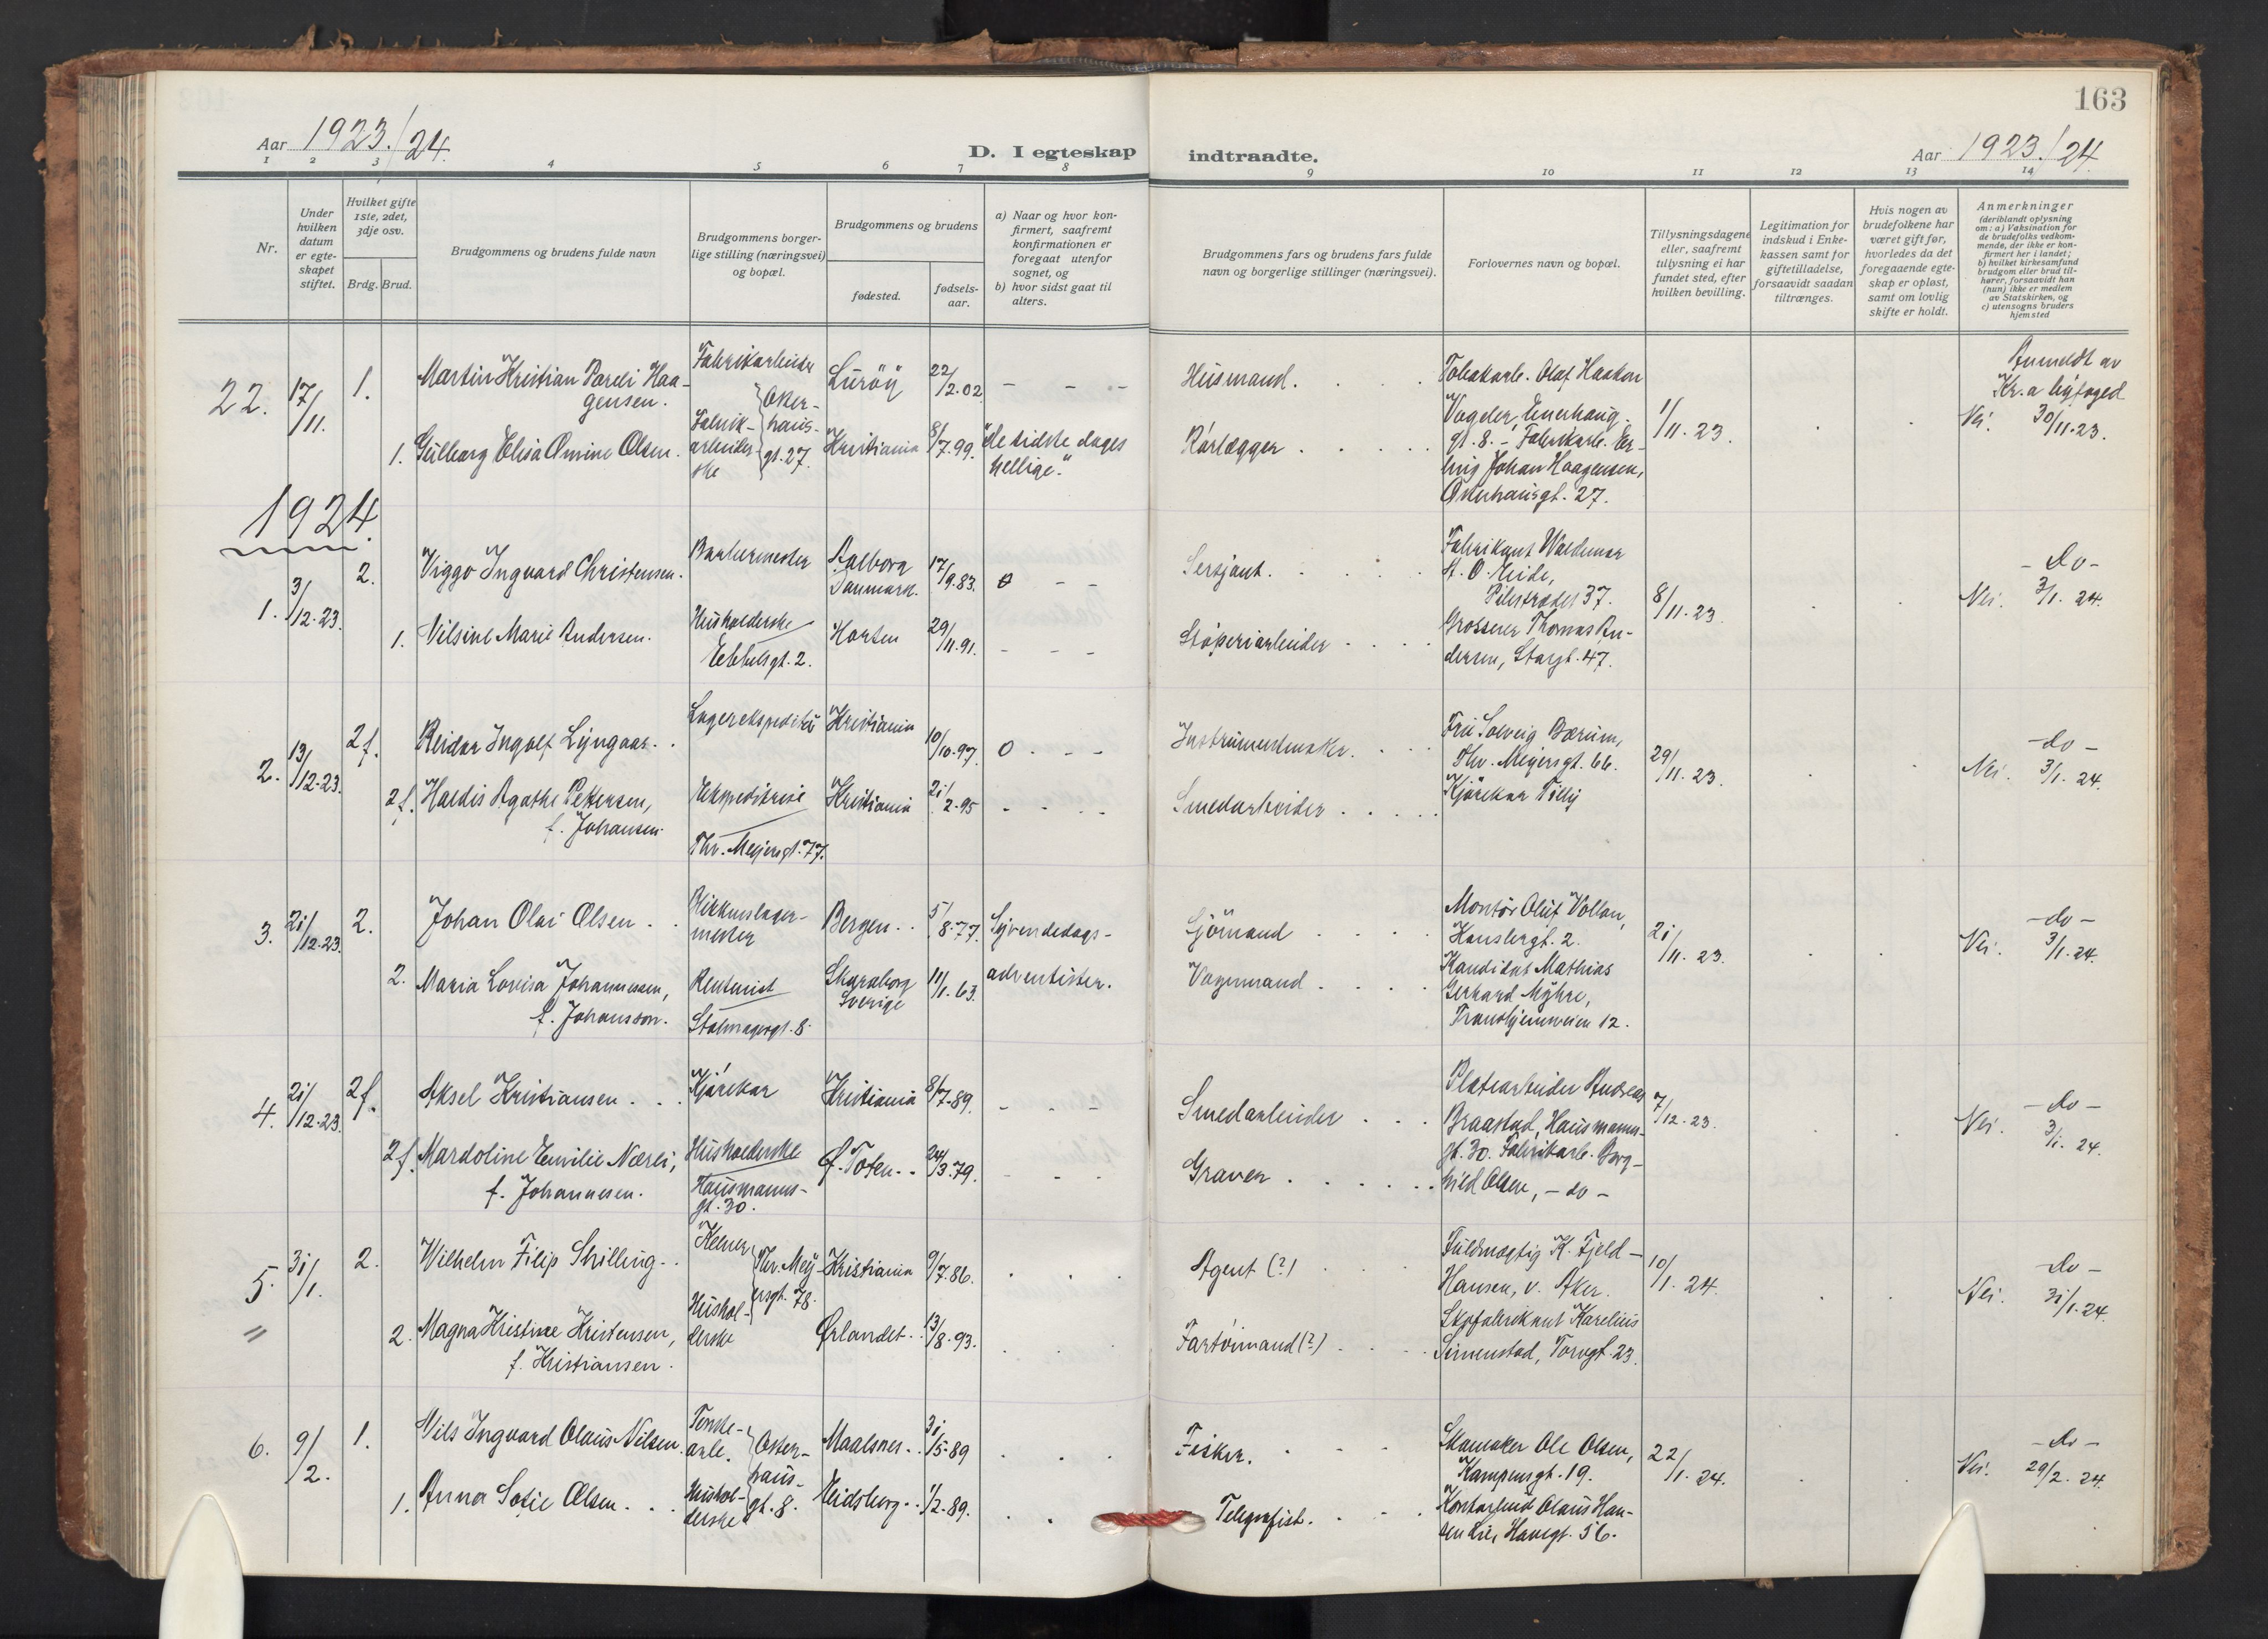 163
Aar 1923./24.
D. I egteskap indtraadte.
Aar 1923./24.
1 2 3 4 5 6 7 8 9 10 11 12 13 14
Nr.
Under hvilken datum er egte-skapet stiftet.
Hvilket gifte 1ste, 2det, 3dje osv.
Brdg. Brud.
Brudgommens og brudens fulde navn
Brudgommens borger-
lige stilling (næringsvei)
og bopæl.
Brudgommens og brudens
fødested.
fødsels-
aar.
a) Naar og hvor kon-
firmert, saafremt
konfirmationen er
foregaat utenfor
sognet, og
b) hvor sidst gaat til
alters.
Brudgommens fars og brudens fars fulde
navn og borgerlige stillinger (næringsvei).
Forlovernes navn og bopæl.
Tillysningsdagene
eller, saafremt
tillysning ei har
fundet sted, efter
hvilken bevilling.
Legitimation for
indskud i Enke-
kassen samt for
giftetilladelse,
forsaavidt saadan
tiltrænges.
Hvis nogen av
brudefolkene har
været gift før,
hvorledes da det
foregaaende egte-
skap er opløst,
samt om lovlig
skifte er holdt.
Anmerkninger
(deriblandt oplysning
om: a) Vaksination for
de brudefolks vedkom-
mende, der ikke er kon-
firmert her i landet;
b) hvilket kirkesamfund
brudgom eller brud til-
hører, forsaavidt han
(hun) ikke er medlem
av Statskirken, og
c) utensogns bruders
hjemsted
22. 17/11. 1. Martin Kristian Pareli Haa-
gensen.
Fabrikarbeider
Lurøy 22/2.02 - - -
Husmand.
Tobakarb. Olaf Haakon
Vogeler, Enerhaug-
gt. 8. - Fabrikarb. Er-
ling Johan Haagensen,
Osterhausgt. 27.
1/11.23.
Anmeldt av
Kr.a byfoged
Nei. 30/11.23.
1. Gulborg Elisa Omine Olsen.
Fabrik-
arbeider
ske
Oster-
haus-
gt. 27.
Kristiania 8/7.99. "de sidste dages
hellige."
Rørlægger
1924.
1. 3/12-23. 2. Viggo Ingvard Christensen.
Barbermester
Aalborg
Danmark. 17/9.83. 0 - -
Sersjant.
Fabrikant Waldemar
H. O. Eide,
Pilestrædet 37.
Grosserer Thomas An-
dersen, Storgt. 47.
8/11-23.
- do -
Nei. 3/1. 24.
1. Nilsine Marie Andersen.
Husholderske
Eebbelsgt. 2.
Horten 29/11.91. - - -
Støperiarbeider
2. 13/12-23. 2 f. Reidar Ingolf Lyngaas.
Lagerekspeditør
Kristiania 10/10.97. 0 - - -
Instrumentmaker.
Fru Solveig Bærum,
Thv. Meyersgt. 66.
Kjørekar Tilly
29/11.23.
- do -
Nei. 3/1. 24.
2 f. Haldis Agathe Pettersen,
f. Johansen
Ekspeditrise
Thv. Meyersgt. 77.
Kristiania 21/2-95 - - -
Smedarbeider
3. 21/12.23. 2. Johan Olai Olsen.
Blikkenslager-
mester
Bergen.. 5/8.77. Syvendedags-
adventister.
Sjömand
Montør Oluf Vollan,
Hauslergt. 2.
Kandidat Mathias
Gerhard Myhre,
Trondhjemsveien 12.
21/11.23.
- do -
Nei. 3/1.24.
2. Maria Lovisa Johannessen,
f. Johansson.
Rentenist
Stolmagergt. 8.
Skaraborg
Sverige 11/1.63.
Vognmand
4. 21/12-23. 2 f. Aksel Kristiansen.
Kjørekar
Kristiania 8/7-89. - - -
Smedarbeider
Platearbeider Andreas
Braastad, Hausmanns-
gt. 30. Fabrikarb. Borg-
hild Olsen, - do -
7/12.23.
- do -
Nei. 3/1. 24.
2 f. Mardoline Emilie Næreli,
f. Johannesen.
Husholderske
Hausmanns-
gt. 30.
Ø. Toten.. 24/3.79. - - -
Graver
5. 31/1. 2. Wilhelm Filip Skilling.
Kelner
Thv. Mey-
ersgt. 78.
Kristiania 9/7.86.
Agent (?)
Fuldmægtig K. Fjeld-
Hansen, v. Aker.
Skofabrikant Karelius
Simenstad, Torvgt. 23.
10/1. 24.
- do -
Nei. 31/1.24.
"
2. Magna Kristine Kristensen,
f. Kristiansen.
Hushol-
derske
Ørlandet.. 13/8-93.
Fartøimand (?)
6. 9/2. 1. Nils Ingvard Olaus Nilsen.
Tomte-
arb.
Oster-
haus-
gt. 8.
Maalsnes.. 31/5-89
Fisker.
Skomaker Ole Olsen,
Kampensgt. 19.
Kontorbud Olaus Han-
sen Lie, Havegt. 56.
22/1. 24.
- do -
Nei. 29/2. 24.
1. Anna Sofie Olsen.
Hushol-
derske
Eidsberg.. 1/2-89.
Telegrafist.